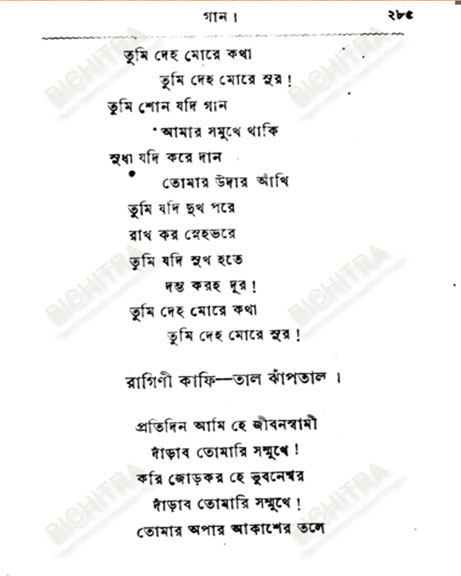 গান। ২৮৫
তুমি দেহ মোরে কথা
তুমি দেহ মোরে সুর!
তুমি শোন যদি গান
আমার সমুখে থাকি
সুধা যদি করে দান
তোমার উদার আঁখি
তুমি যদি দুখ পরে
রাখ কর স্নেহভরে
তুমি যদি সুখ হতে
দম্ভ করহ দূর!
তুমি দেহ মোরে কথা
তুমি দেহ মোরে সুর!
রাগিণী কাফি—তাল ঝাঁপতাল।
প্রতিদিন আমি হে জীবনস্বামী
দাঁড়াব তোমারি সম্মুখে!
করি জোড়কর হে ভুবনেশ্বর
দাঁড়াব তোমারি সম্মুখে!
তোমার অপার আকাশের তলে
BICHITRA
BICHITRA
BICHITRA
BICHITRA
BICHITRA
BICHITRA